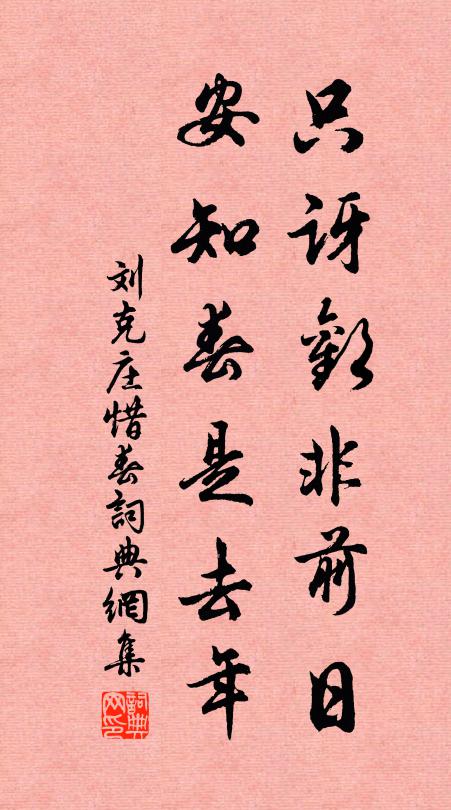 只讶歡非前日
安知春是去年
刘克庄惜春詞典網集
詞典网印